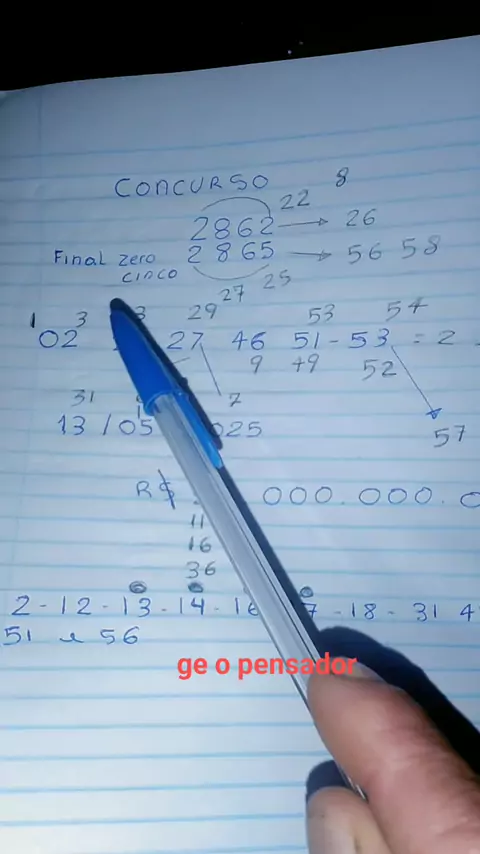 CONCURSO 8
22
2862 → 26
Final zero 2865 → 56 58
cinco
27 25
1 3 3 29 53 54
02 27 46 51 - 53 = 2
9 +9 52
31 7 57
13 / 05 025
R$ 000.000.0
11
16
36
2 - 12 - 13 - 14 - 1 7 - 18 - 31 4
51 e 56
ge o pensador